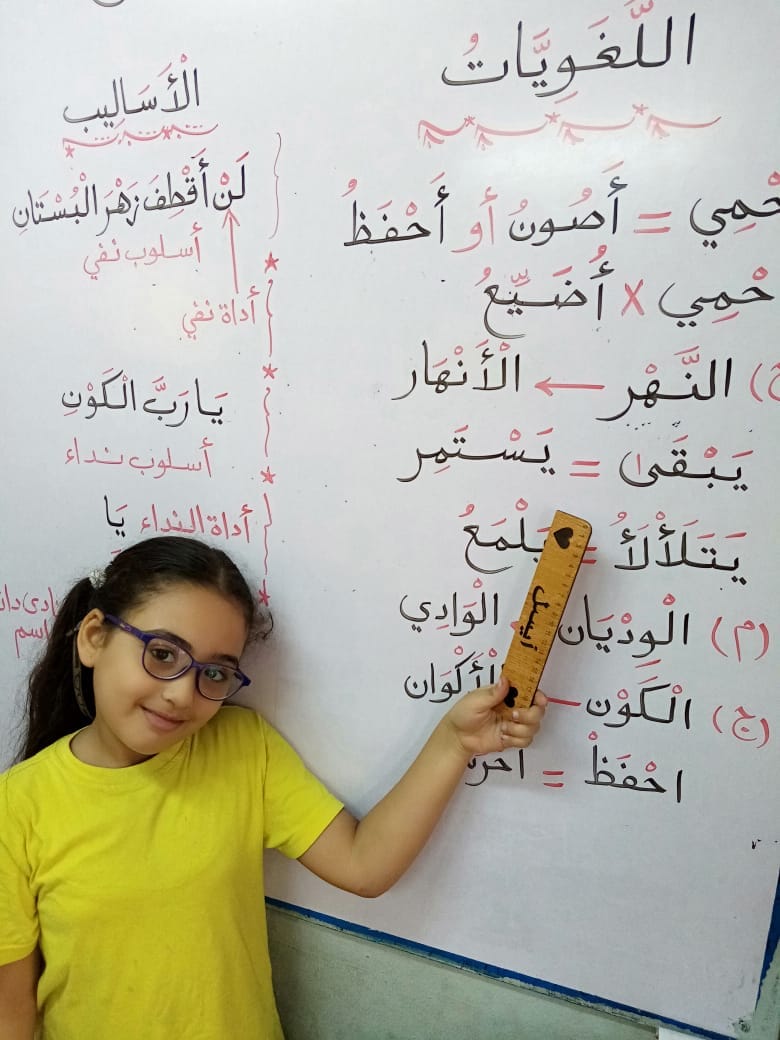 اللُّغَوِيَّاتُ
حْمِي = أَصُونُ أو أَحْفَظُ
حْمِي x أُضَيِّعُ
ج) النَّهْر ← الْأَنْهَار
يَبْقَى = يَسْتَمِر
يَتَلَأْلَأُ = يَلْمَعُ
(م) الْوِدْيَان الْوَادِي
(ج) الْكَوْن الْأَكْوَان
احْفَظْ = احرس
الْأَسَالِيب
لَنْ أَقْطِفَ زَهْرَ الْبُسْتَانِ
أسلوب نفي
أداة نفي
يَا رَبَّ الْكَوْنِ
أسلوب نداء
أداة النداء يَا
اسم